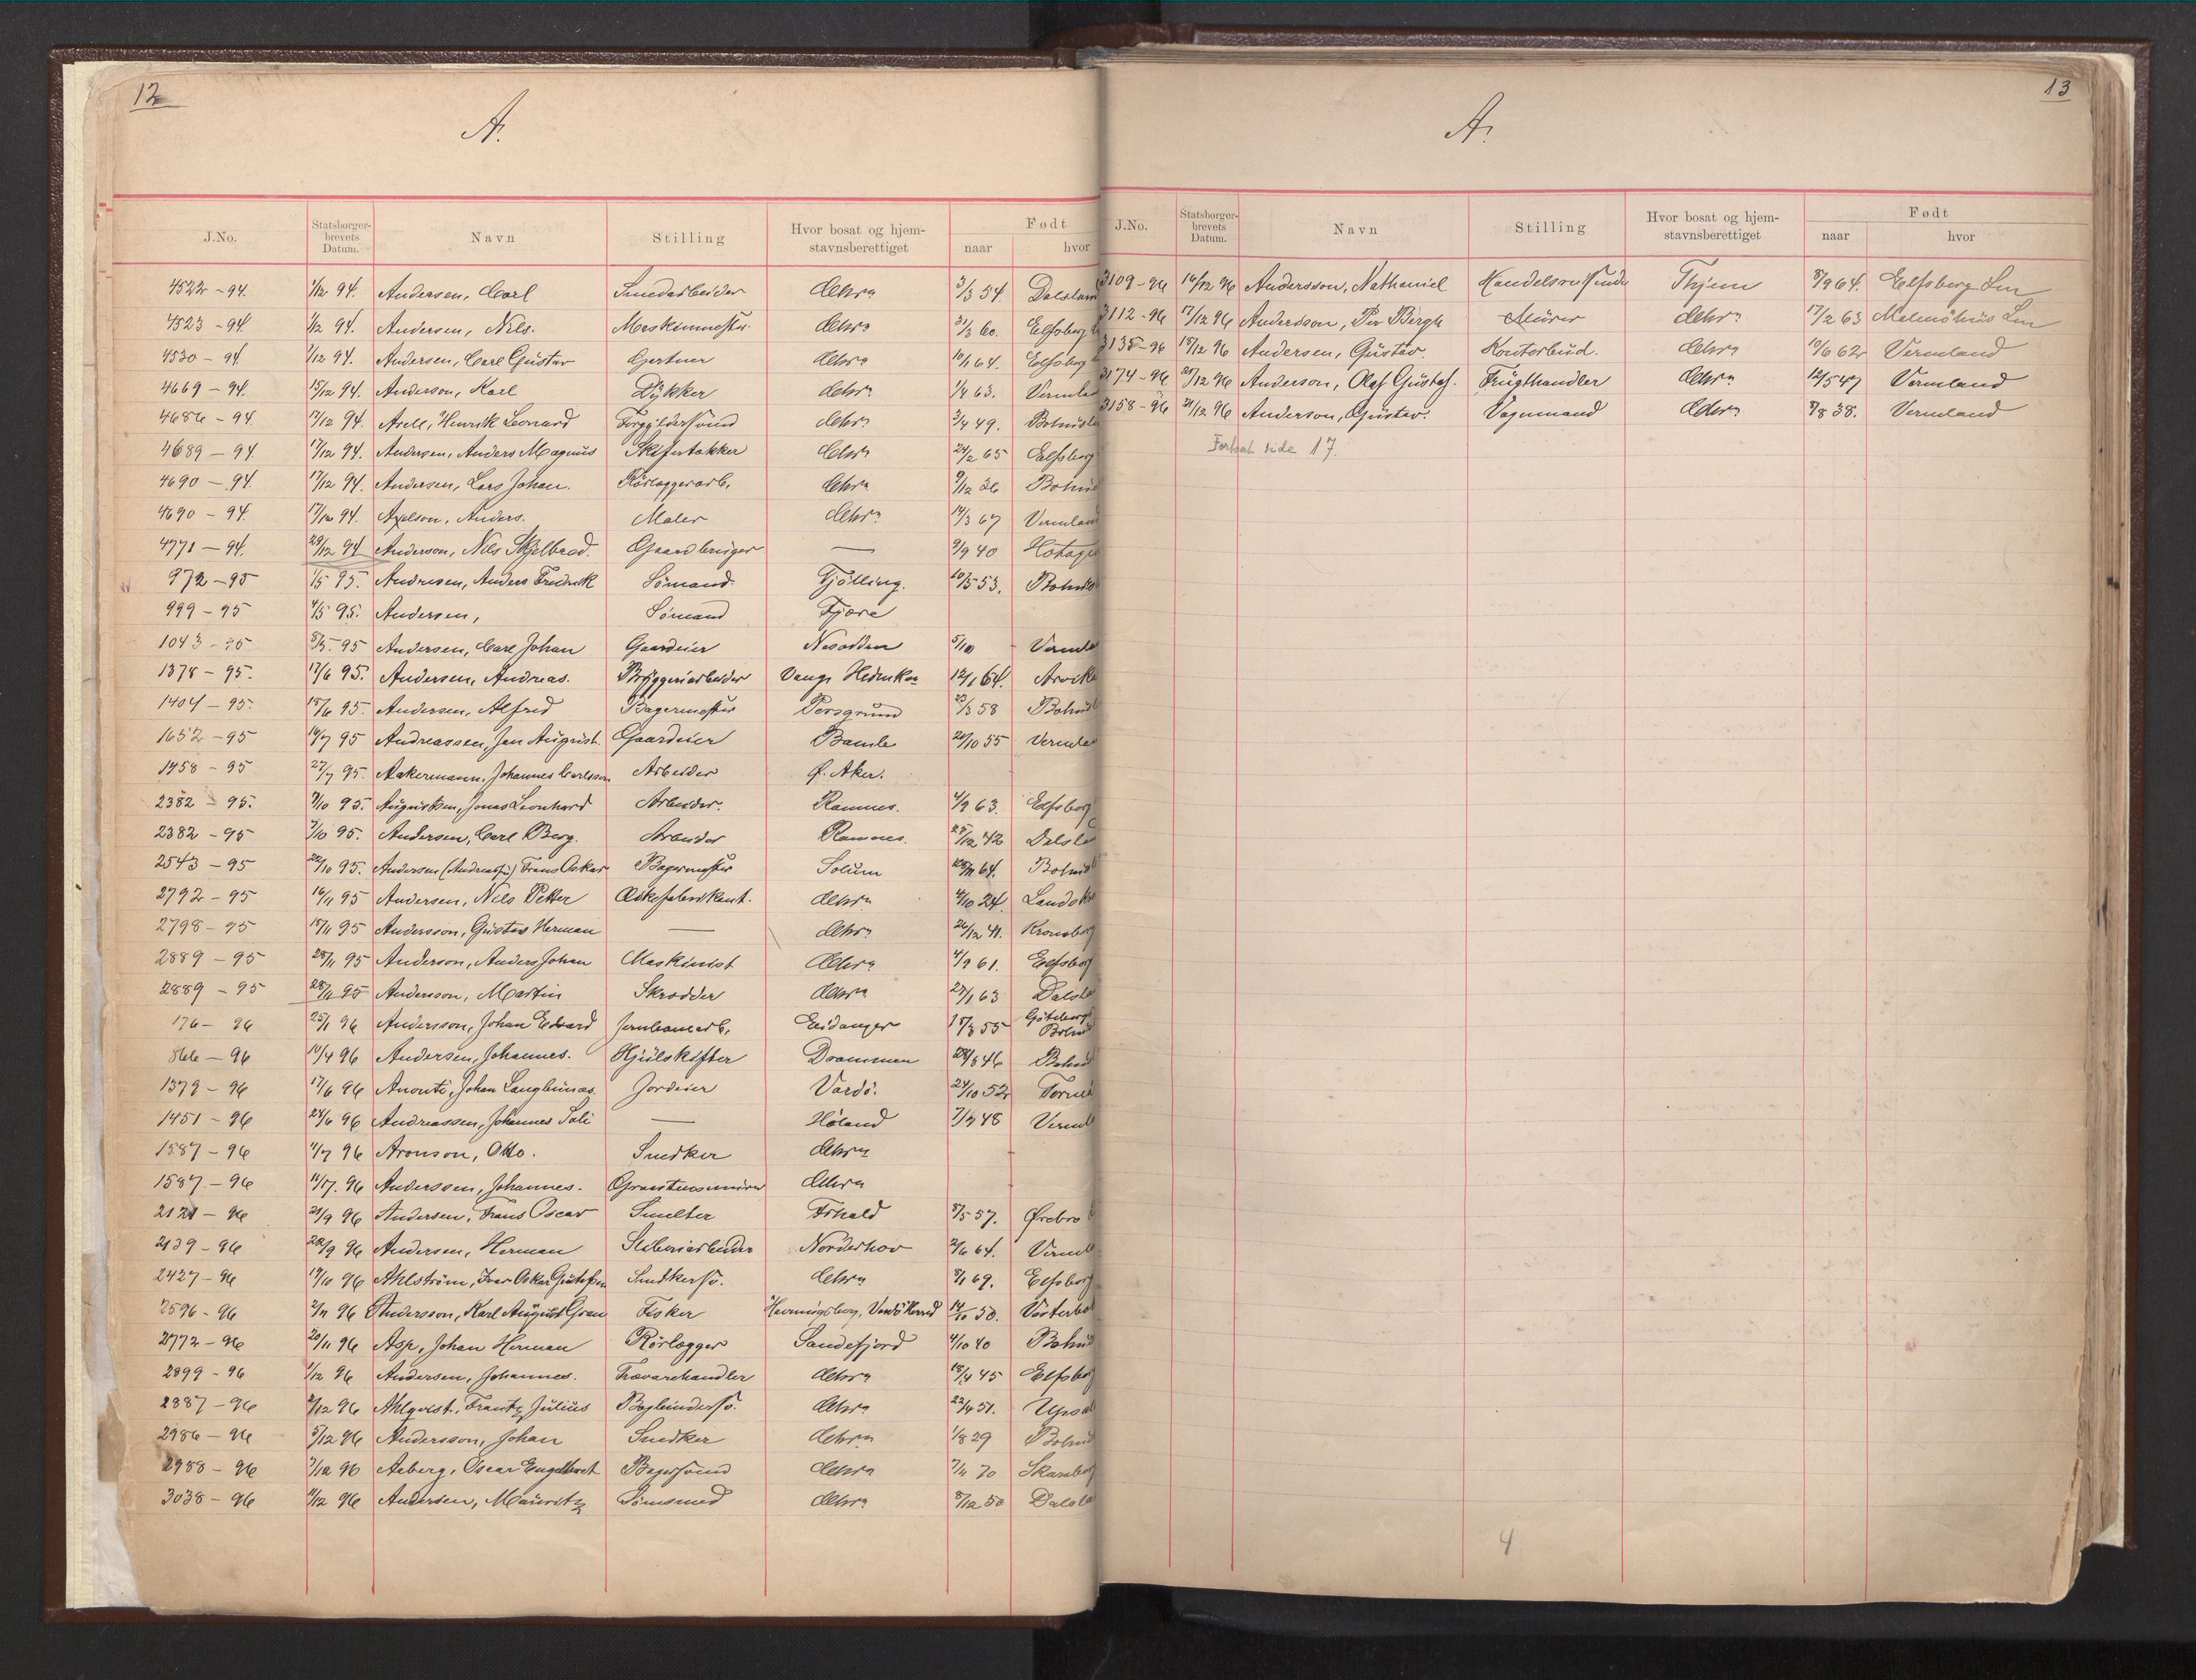 12
A.
J.No. Statsborger-brevets Datum. Navn Stilling Hvor bosat og hjem-stavnsberettiget Født naar hvor
4522 - 94. 1/12 94. Andersen, Carl Smedarbeider Chra 3/3 54. Dalsland
4523 - 94. 1/12 94. Andersen, Nils. Maskinmester Chra 31/3 60. Elfsborg
4530 - 94 1/12 94. Andersen, Carl Gustav Gartner Chra 10/1 64. Elfsborg
4669 - 94. 15/12 94. Anderson, Karl Dykker Chra 1/4 63. Vermla
4686 - 94. 17/12 94. Arell, Henrik Leonard Forgyldersvend Chra 3/4 49. Bohusla
4689 - 94. 17/12 94. Andersen, Anders Magnus Skifertækker Chra 24/2 65 Elfsborg
4690 - 94. 17/12 94. Andersen, Lars Johan. Rörlæggerarb. Chra 9/12 36 Bohus
4690 - 94. 17/12 94. Axelson, Anders. Maler Chra 14/3 67 Vermland
4771 - 94. 29/12 94 Anderson, Nils Skjelbred. Gaardbruger — 9/9 40 Hotage
972 - 95 1/5 95. Andresen, Anders Fredrik Sömand. Tjölling. 10/5 53. Bohus
999 - 95 4/5 95. Andersen, Sömand Fjære
1043 - 95 8/5 95 Andersen, Carl Johan Gaardeier Nesodden 5/10 Vermla
1378 - 95. 17/6 95. Andersen, Andreas. Bryggeriarbeider Vang, Hedmken 12/1 64. Arvika
1404 - 95. 18/6 95. Andersen, Alfred Bagermester Porsgrund 23/3 58 Bohus
1652 - 95 16/7 95 Andreassen, Jan August. Gaardeier Bamle 20/10 55 Vermla
1758 - 95 27/7 95. Aakermann, Johannes Carlsson Arbeider Ø. Aker.
2382 - 95. 7/10 95. Augustsen, Jonas Leonhard Arbeider. Ramnes. 4/9 63. Elfsborg
2382 - 95 7/10 95. Andersen, Carl Berg. Arbeider Ramnes. 25/12 42 Dalsla
2543 - 95 22/10 95. Andersen (Andreasson) Frans Oskar Bagermester Solum 64. Bohus
2792 - 95 16/11 95 Andersen, Nils Petter Æskefabrikant. Chra 4/10 24. Landskr
2798 - 95 18/11 95 Andersson, Gustav Herman — Chra 26/12 41. Kronoborg
2889 - 95 28/11 95 Anderson, Anders Johan Maskinist Chra 4/9 61. Elfsborg
2889 - 95 28/11 95 Andersson, Martin Skrædder Chra 27/1 63 Dalsla
176 - 96 25/1 96 Andersson, Johan Edvard Jernbanearb. Eidanger 17/3 55 Göteborg Bohus
866 - 96 10/4 96 Andersen, Johannes. Hjulskifter Drammen 28/3 46 Bohus
1379 - 96 17/6 96 Anonti, Johan Langbunæs. Jordeier Vardö. 24/10 52 Torneå
1451 - 96 24/6 96 Andreassen, Johannes Sali — Höland 7/7 48 Verml
1587 - 96 11/7 96 Aronson, Otto. Snedker Chra
1587 - 96 11/7. 96 Anderssen, Johannes. Graastensmurer Chra
2121 - 96 21/9 96 Andersen, Frans Oscar Smelter Frhald 8/5 57. Ørebro
2139 - 96 22/9 96 Andersen, Herman Sliberiarbeider Norderhov 2/6 64. Verml
2427 - 96 19/10 96 Ahlström, Ivar Oskar Gustafsen Snedkersv. Chra 8/1 69. Elfsborg
2596 - 96 2/11 96 Andersson, Karl August Gran Fisker Havningsberg, Vardö Herred 14/10 50. Vesterbo
2772 - 96 20/11 96 Asp, Johan Herman Rörlægger Sandefjord 4/10 40 Bohus
2899 - 96 1/12 96 Andersen, Johannes. Trævarehandler Chra 18/4 45 Elfsborg
2887 - 96 2/12 96 Ahlqvist, Frantz Julius Bogbindersv. Chra 22/4 51. Upsal
2986 - 96 5/12 96 Andersson, Johan Snedker Chra 1/8 29 Bohus
2988 - 96 7/12 96 Aaberg, Oscar Engelbret Bagersvend Chra 7/11 70 Skaraborg
3038 - 96 11/12 96 Andersen, Mauritz Sömsmed Chra 8/12 50 Dalsla
13
A.
J.No. Statsborger-brevets Datum. Navn Stilling Hvor bosat og hjem-stavnsberettiget Født naar hvor
3109 - 96 16/12 96 Andersson, Nathaniel Handelsreisende Thjem 8/9 64. Elfsborg Len
3112 - 96 17/12 96 Andersson, Per Bergh Murer Chra 17/2 63 Malmöhus Len
3135 - 96 18/12 96 Andersen, Gustav. Kontorbud. Chra 10/6 62 Vermland
3174 - 96 21/12 96 Anderson, Olaf Gustaf. Frugthandler Chra 12/5 47 Vermland
3158 - 96 21/12 96 Anderson, Gustav. Vognmand Chra 8/8 38. Vermland
Fortsat side 17.
4